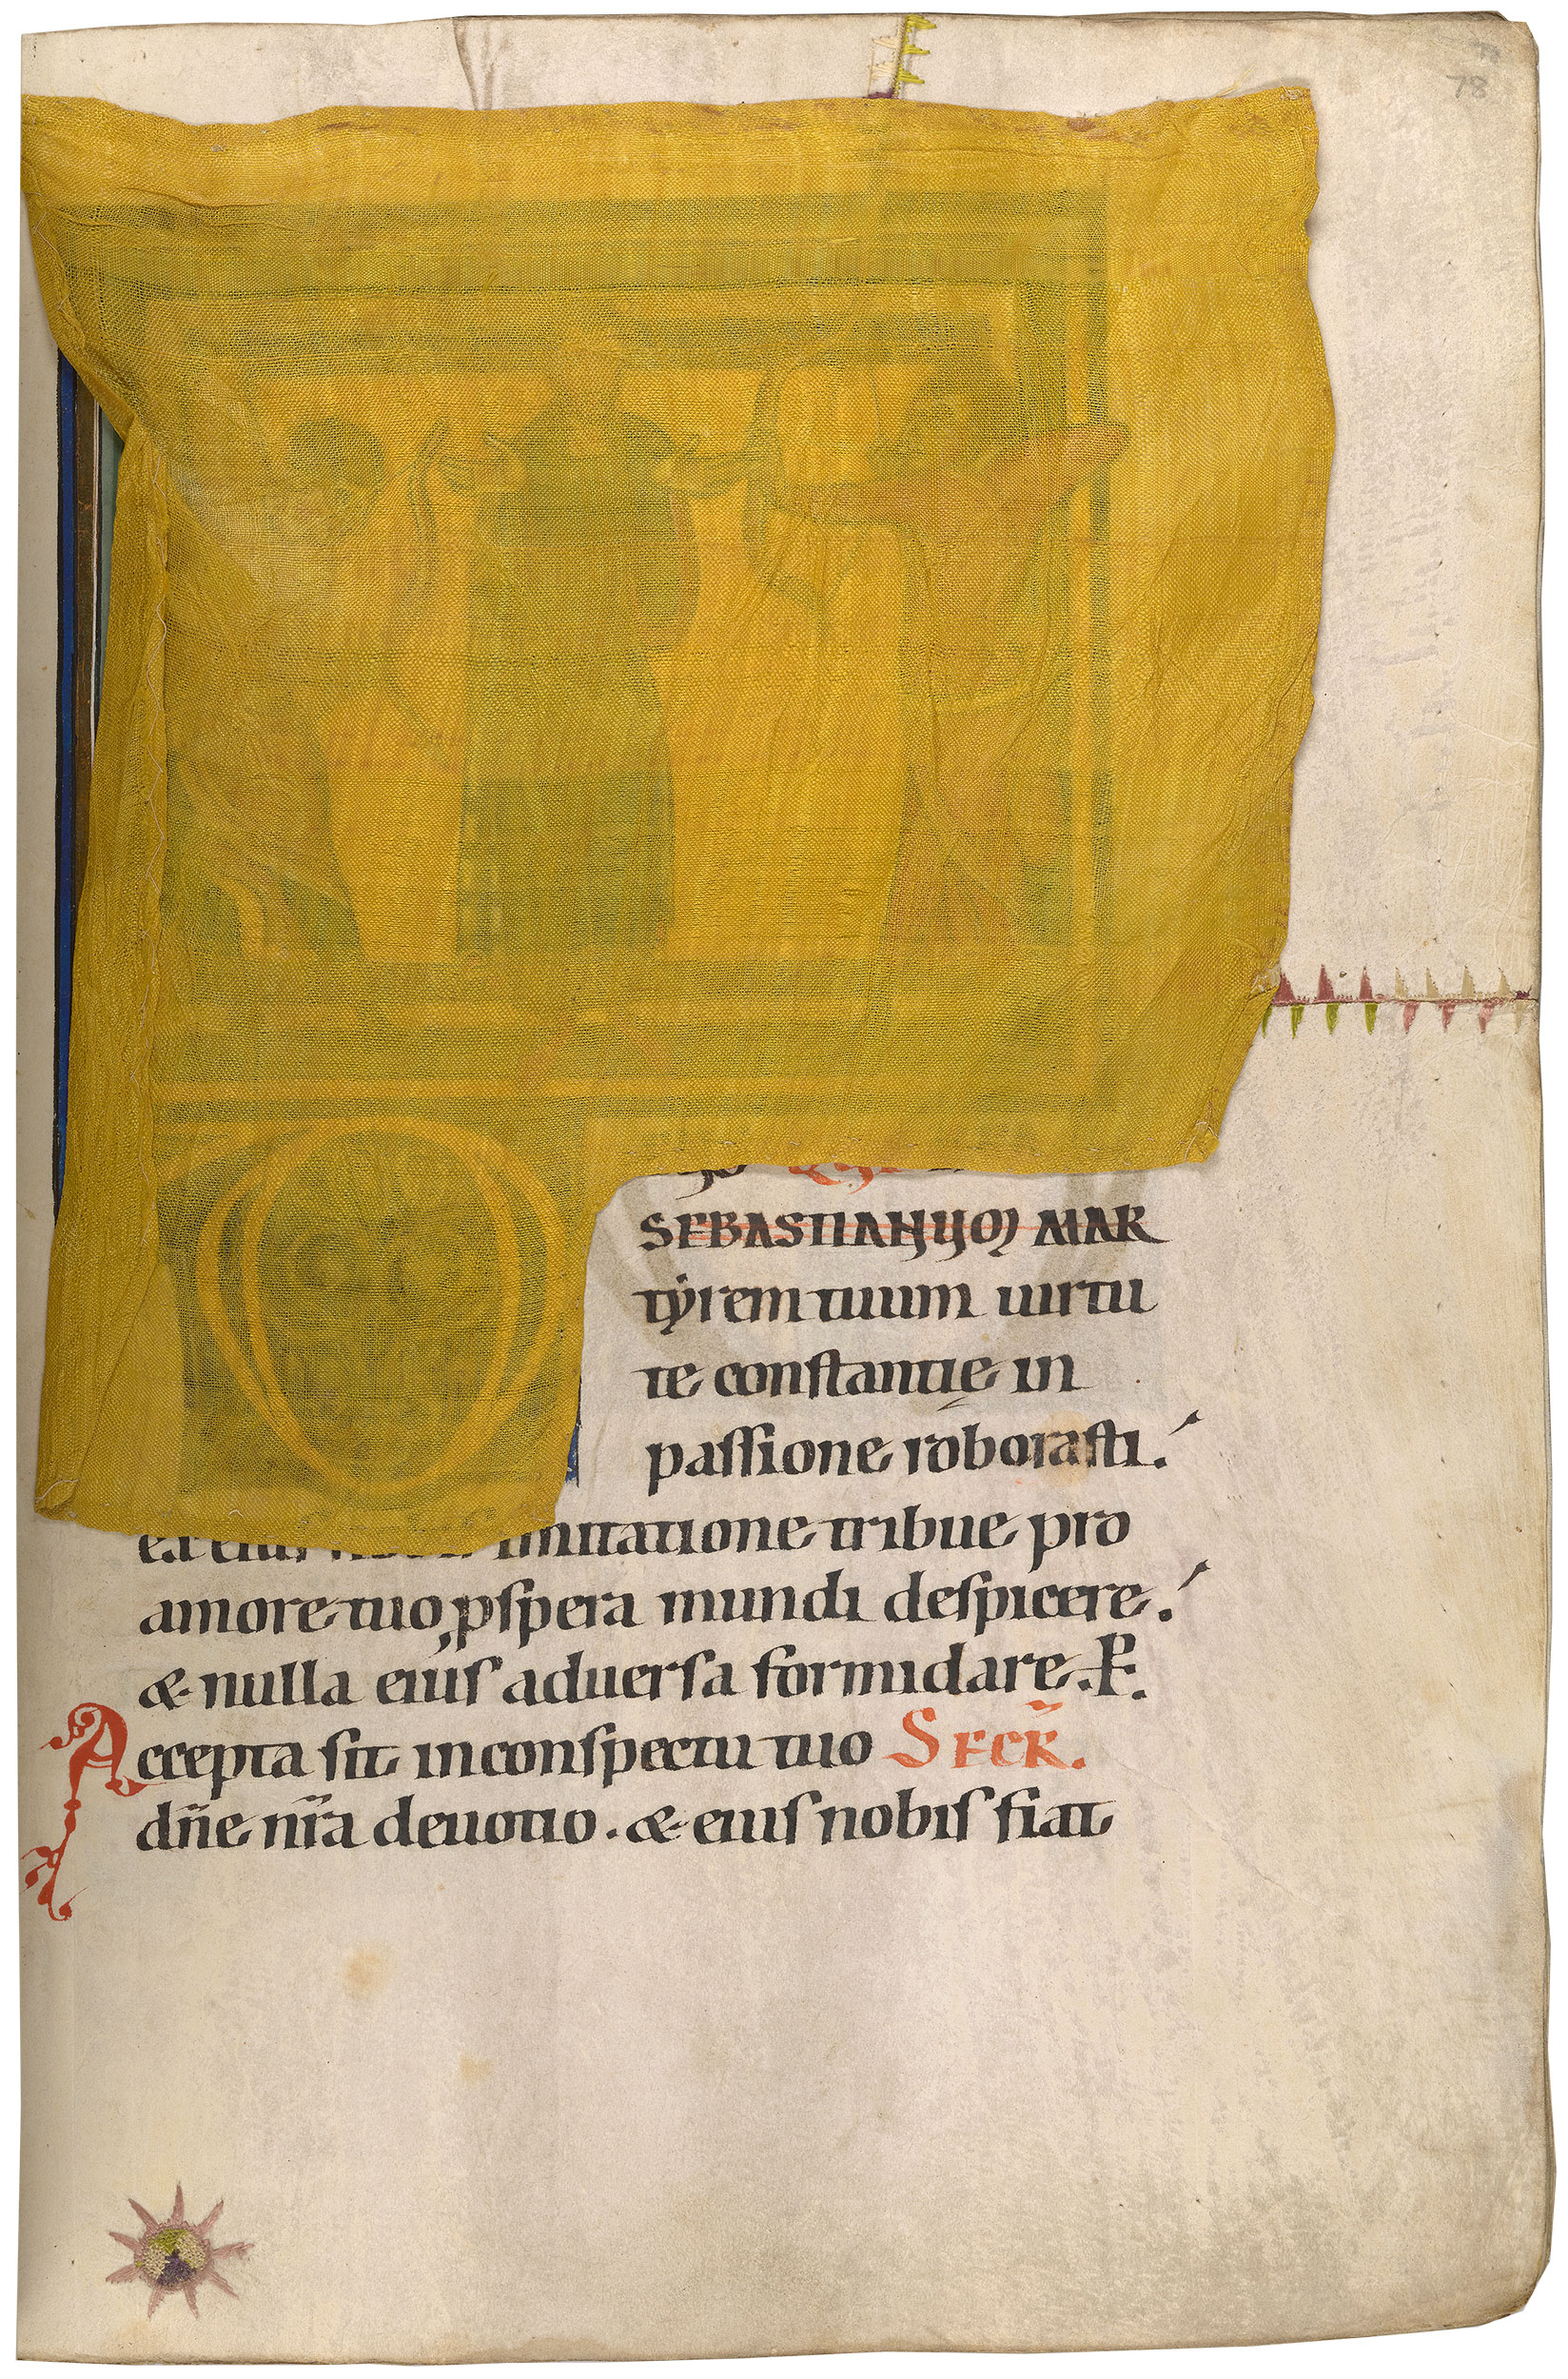 78
SEBASTIANUM MAR
tẏrem tuum uirtu
te constantię in
passione roborasti.
imitatione tribue pro
amore tuo, pspera mundi despicere.
& nulla eius aduersa formidare. P.
Accepta sit in conspectu tuo SECR̃.
dn̄e nr̄a deuotio. & eius nobis fiat